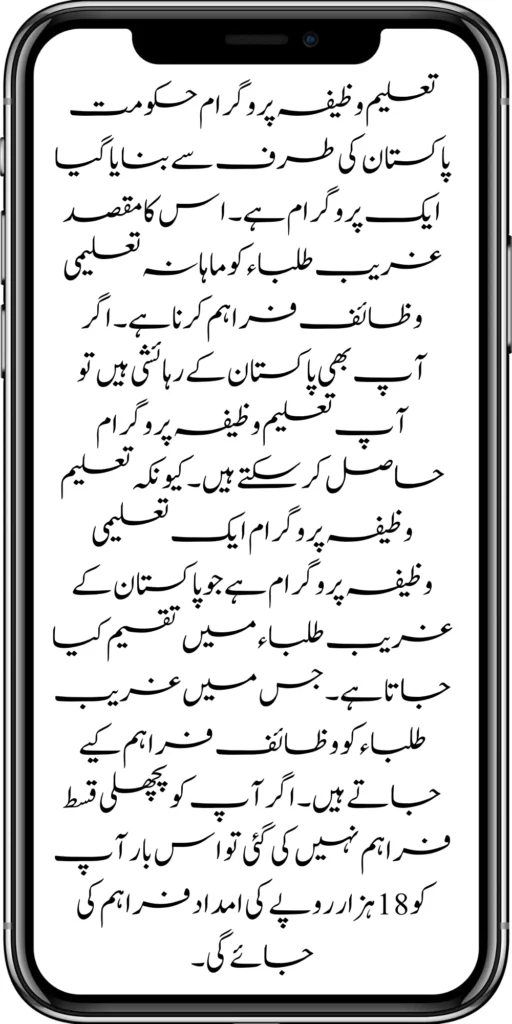 تعلیم وظیفہ پروگرام حکومت
پاکستان کی طرف سے بنایا گیا
ایک پروگرام ہے۔ اس کا مقصد
غریب طلباء کو ماہانہ تعلیمی
وظائف فراہم کرنا ہے۔ اگر
آپ بھی پاکستان کے رہائشی ہیں تو
آپ تعلیم وظیفہ پروگرام
حاصل کر سکتے ہیں۔ کیونکہ تعلیم
وظیفہ پروگرام ایک تعلیمی
وظیفہ پروگرام ہے جو پاکستان کے
غریب طلباء میں تقسیم کیا
جاتا ہے۔ جس میں غریب
طلباء کو وظائف فراہم کیے
جاتے ہیں۔ اگر آپ کو پچھلی قسط
فراہم نہیں کی گئی تو اس بار آپ
کو 18 ہزار روپے کی امداد فراہم کی
جائے گی۔